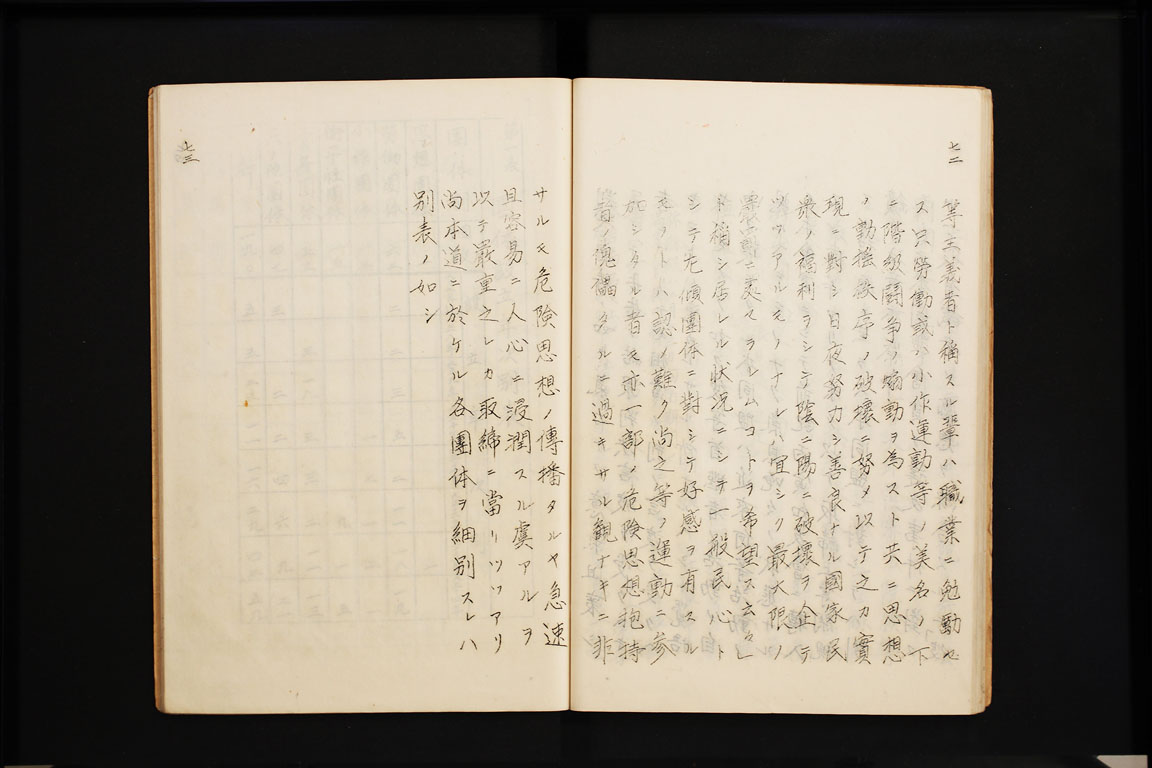 七二
等主義者ト稱スル輩ハ職業ニ勉勵セ
ス只勞働或ハ小作運動等ノ美名ノ下
ニ階級鬪争ノ煽動ヲ為スト共ニ思想
ノ動揺秩序ノ破壊ニ努メ以テ之カ實
現ニ對シ日夜努力シ善良ナル國家民
衆ノ福利ヲシテ陰ニ陽ニ破壊ヲ企テ
ツヽアルモノナレハ宜シク最大限ノ
懲罰ニ處セラレムコトヲ希望ス云々」
ト稱シ居レル状況ニシテ一般民心ト
シテ左傾團体ニ對シテ好感ヲ有スル
モノトハ認ノ難ク尚之等ノ運動ニ参
加シタル者モ亦一部ノ危険思想抱持
者ノ傀儡タルニ過キサル観ナキニ非
七三
サルモ危険思想ノ傳播タルヤ急速
且容易ニ人心ニ浸潤スル虞アルヲ
以テ嚴重之レカ取締ニ當リツツアリ
尚本道ニ於ケル各團体ヲ細別スレハ
別表ノ如シ